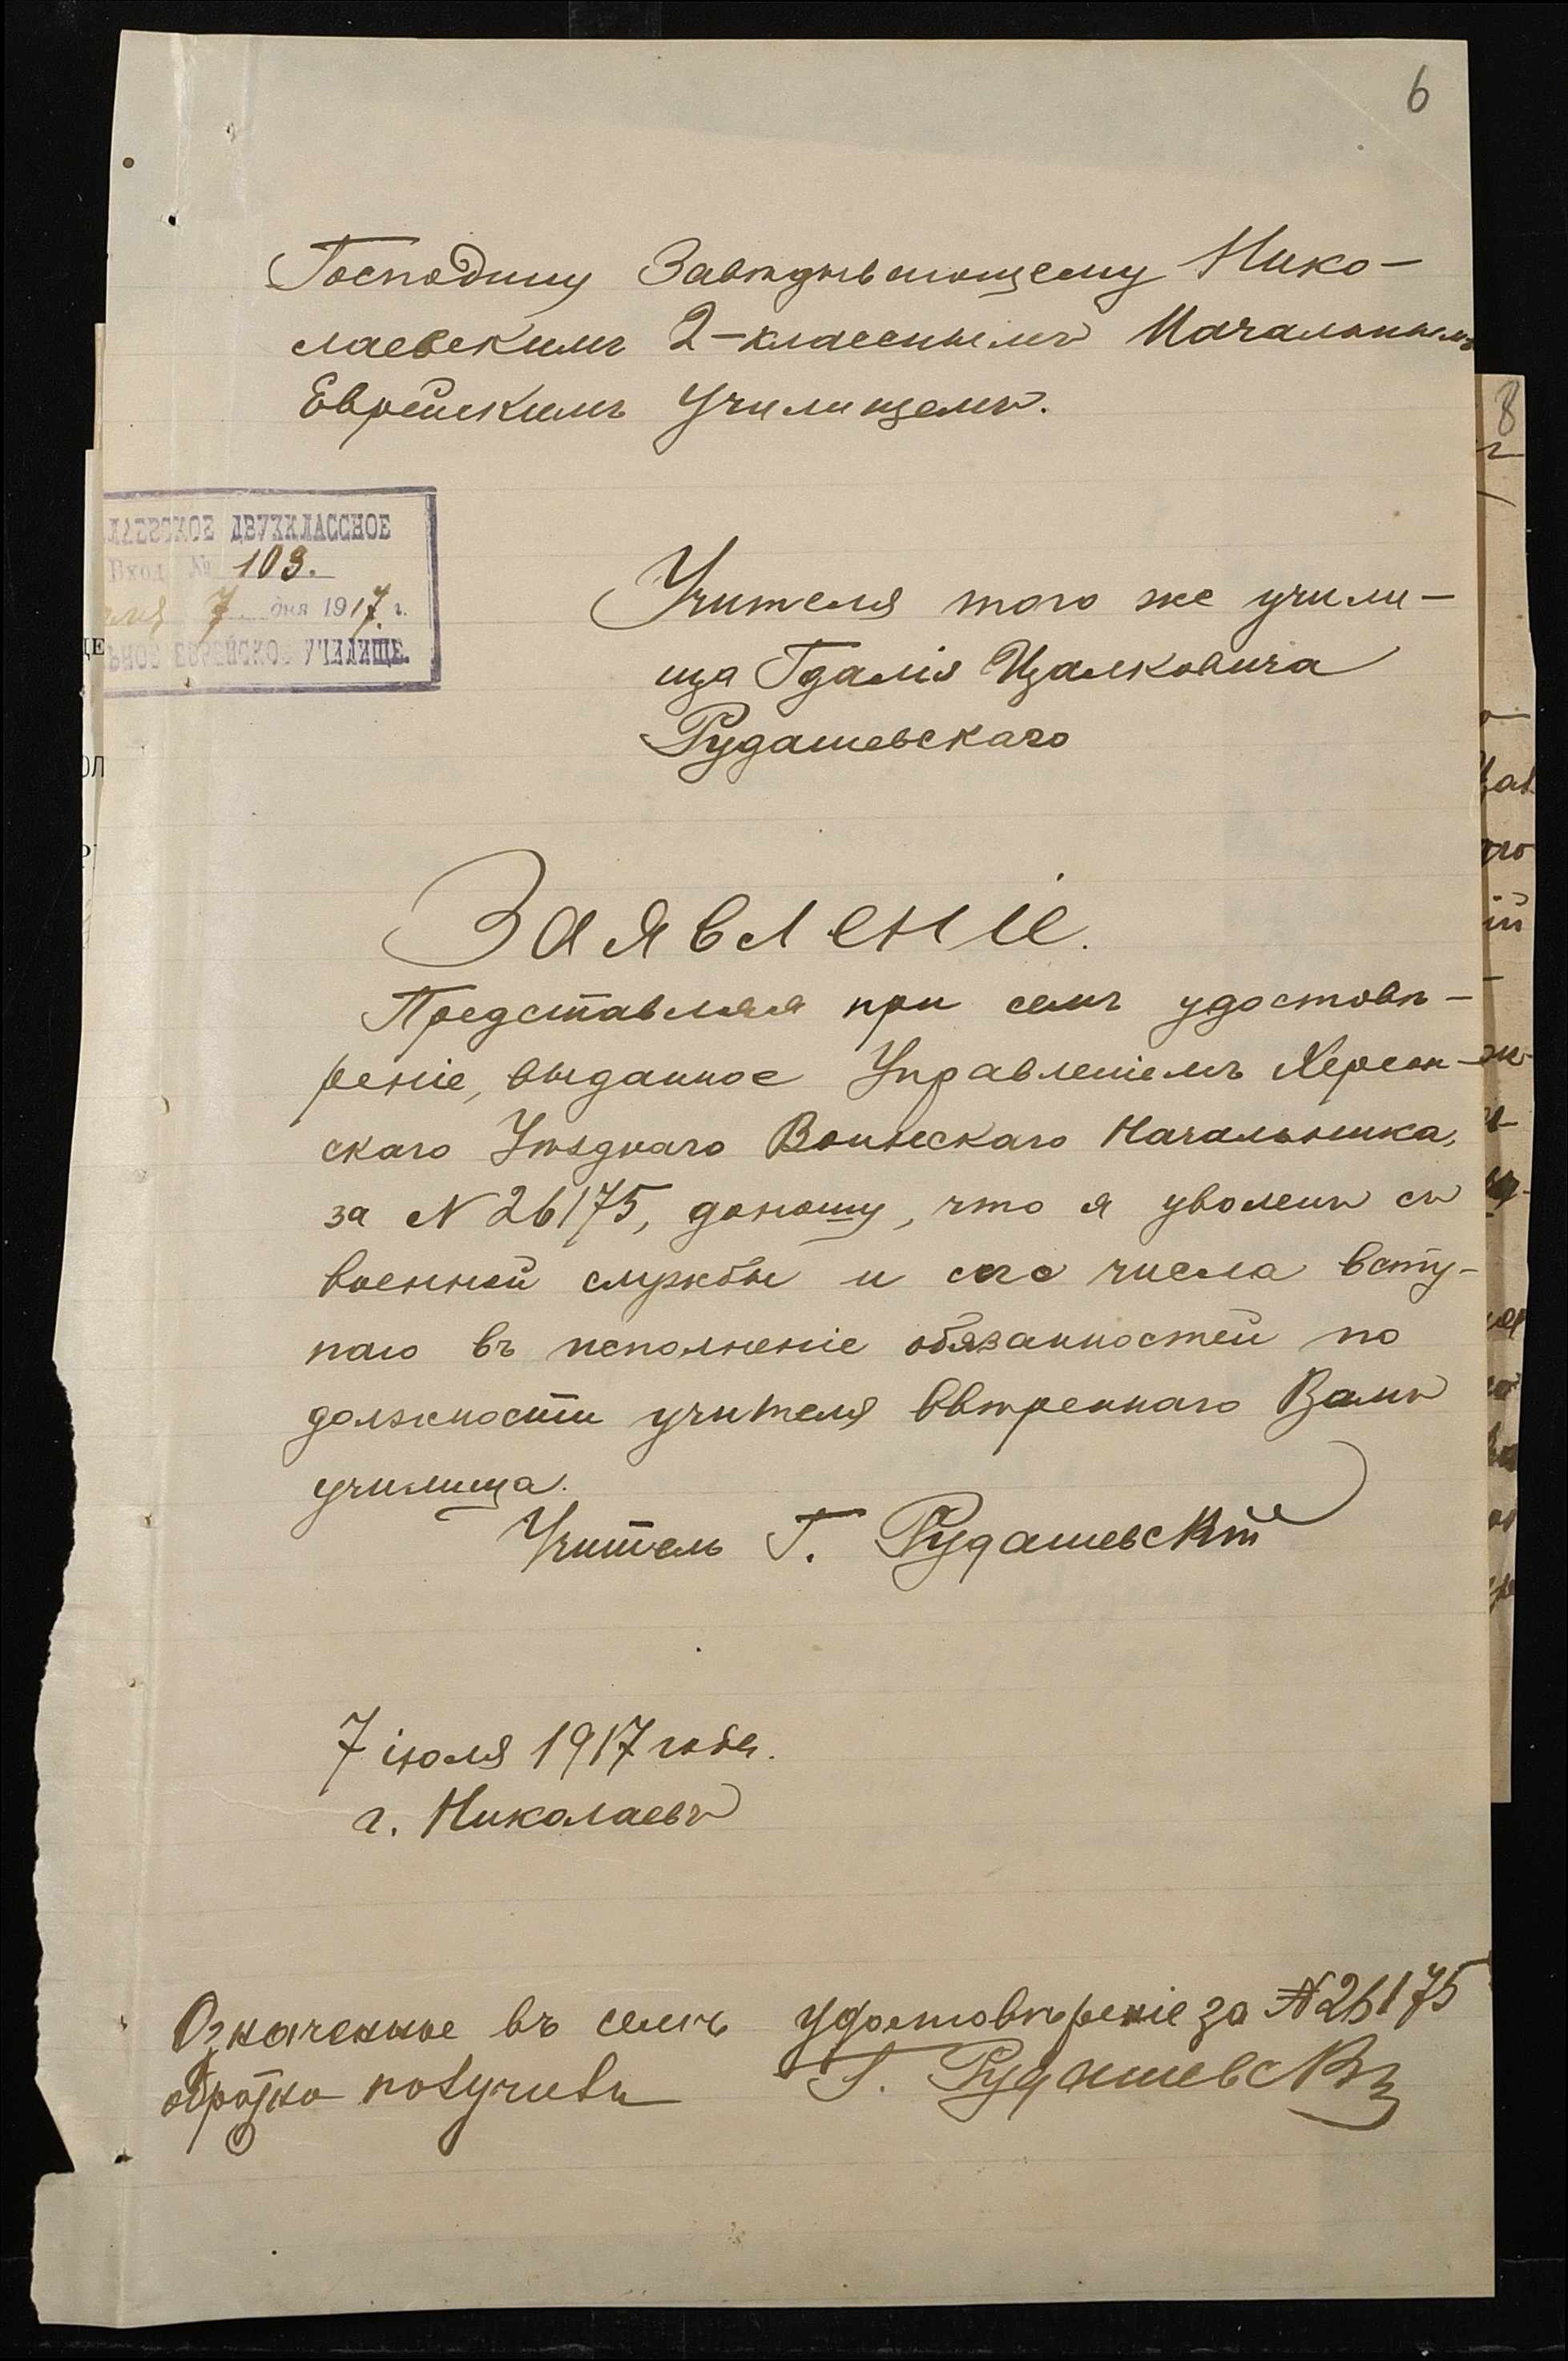 6
Господину Завѣдывающему Нико-
лаевскимъ 2-класснымъ Начальнымъ
Еврейскимъ Училищемъ.
ЛАЕВСКОЕ ДВУХКЛАССНОЕ
Вход. № 103.
7 дня 1917 г.
ЬНОЕ ЕВРЕЙСКОЕ УЧИЛИЩЕ.
Учителя того же учили-
ща Гдалія Ицалковича
Рудашевскаго
Заявленіе.
Представляя при семъ удостовѣ-
реніе, выданное Управленіемъ Херсон-
скаго Уѣзднаго Воинскаго Начальника,
за N 26175, доношу, что я уволенъ съ
военной службы и сего числа всту-
паю въ исполненіе обязанностей по
должности учителя ввѣреннаго Вамъ
училища.
Учитель Г. Рудашевскій
7 іюля 1917 года.
г. Николаевъ
Означенное въ семъ удостовѣреніе за №26175
обратно получилъ Г. Рудашевскій
8